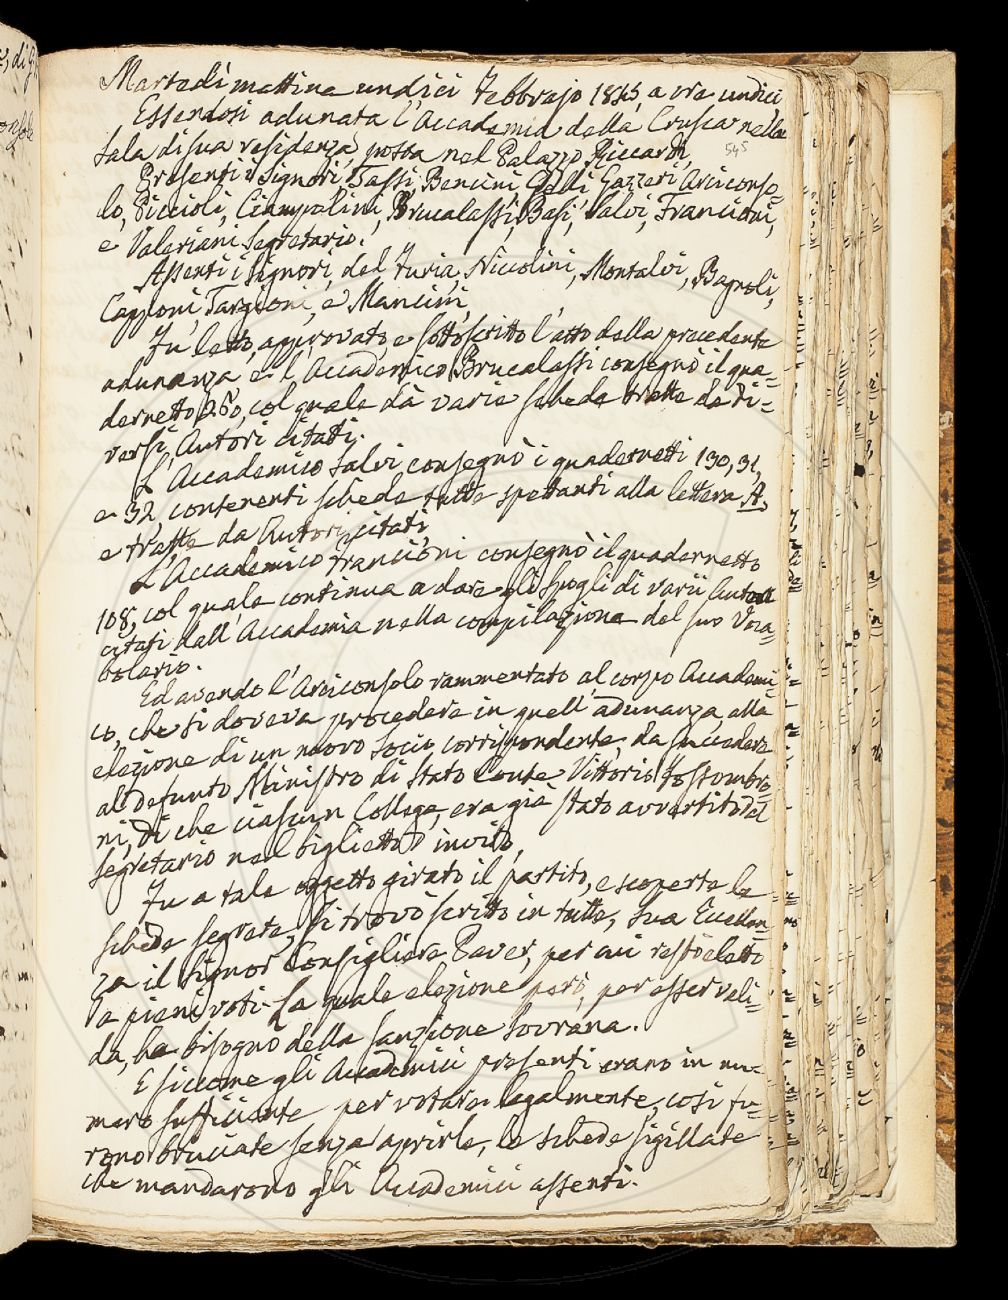 Martedì mattina undici Febbrajo 1845, a ore undici
Essendosi adunata l'Accademia della Crusca nella
sala di sua residenza, posta nel Palazzo Riccardi,
545
Presenti i Signori Tassi, Bencini, Gelli, Gazzeri Arciconso=
lo, Piccioli, Ciampolini, Brucalassi, Basi, Salvi, Francioni,
e Valeriani Segretario.
Assenti i Signori, del Furia, Niccolini, Montalvi, Bagnoli,
Capponi, Targioni, e Mancini,
Fu letto, approvato, e sottoscritto l'atto della precedente
adunanza e l'Accademico Brucalassi consegnò il qua=
dernetto 260, col quale dà varie schede tratte da di=
versi Autori citati.
L'Accademico Salvi, consegnò i quadernetti 130, 31,
e 32, contenenti schede tutte spettanti alla lettera A,
e tratte da Autori citati,
L'Accademico Francioni consegnò il quadernetto
108, col quale continua a dare gli spogli di varii Autori
citati dall'Accademia nella compilazione del suo Voca=
bolario.
Ed avendo l'Arciconsolo rammentato al corpo Accademi=
co, che si doveva procedere in quell'adunanza alla
elezione di un nuovo Socio corrispondente, da succedere
al defunto Ministro di Stato Conte Vittorio Fossombro=
ni, di che ciascun Collega, era già stato avvertito dal
Segretario nel biglietto d'invito,
Fu a tale oggetto girato il partito, e scoperte le
schede segrete, si trovò scritto in tutte, Sua Eccellen=
za il Signor Consigliere Paver, per cui restò eletto
a pieni voti. La quale elezione però, per esser vali=
da, ha bisogno della sanzione Sovrana.
E siccome gli Accademici presenti erano in nu=
mero sufficiente per votare legalmente, così fu=
rono bruciate senza aprirle, le schede sigillate
che mandarono gli Accademici assenti.